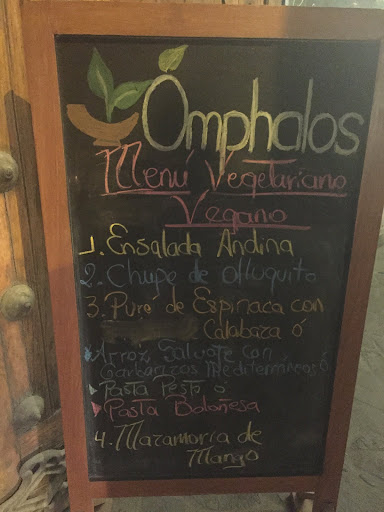 Omphalos
Menú Vegetariano
Vegano
1. Ensalada Andina
2. Chupe de olluquito
3. Pure de Espinaca con
Calabaza ó
Arroz Salvate con
Garbanzos Mediterráneos ó
Pasta Pesto o
Pasta Boloñesa
4. Mazamorra de
Mango